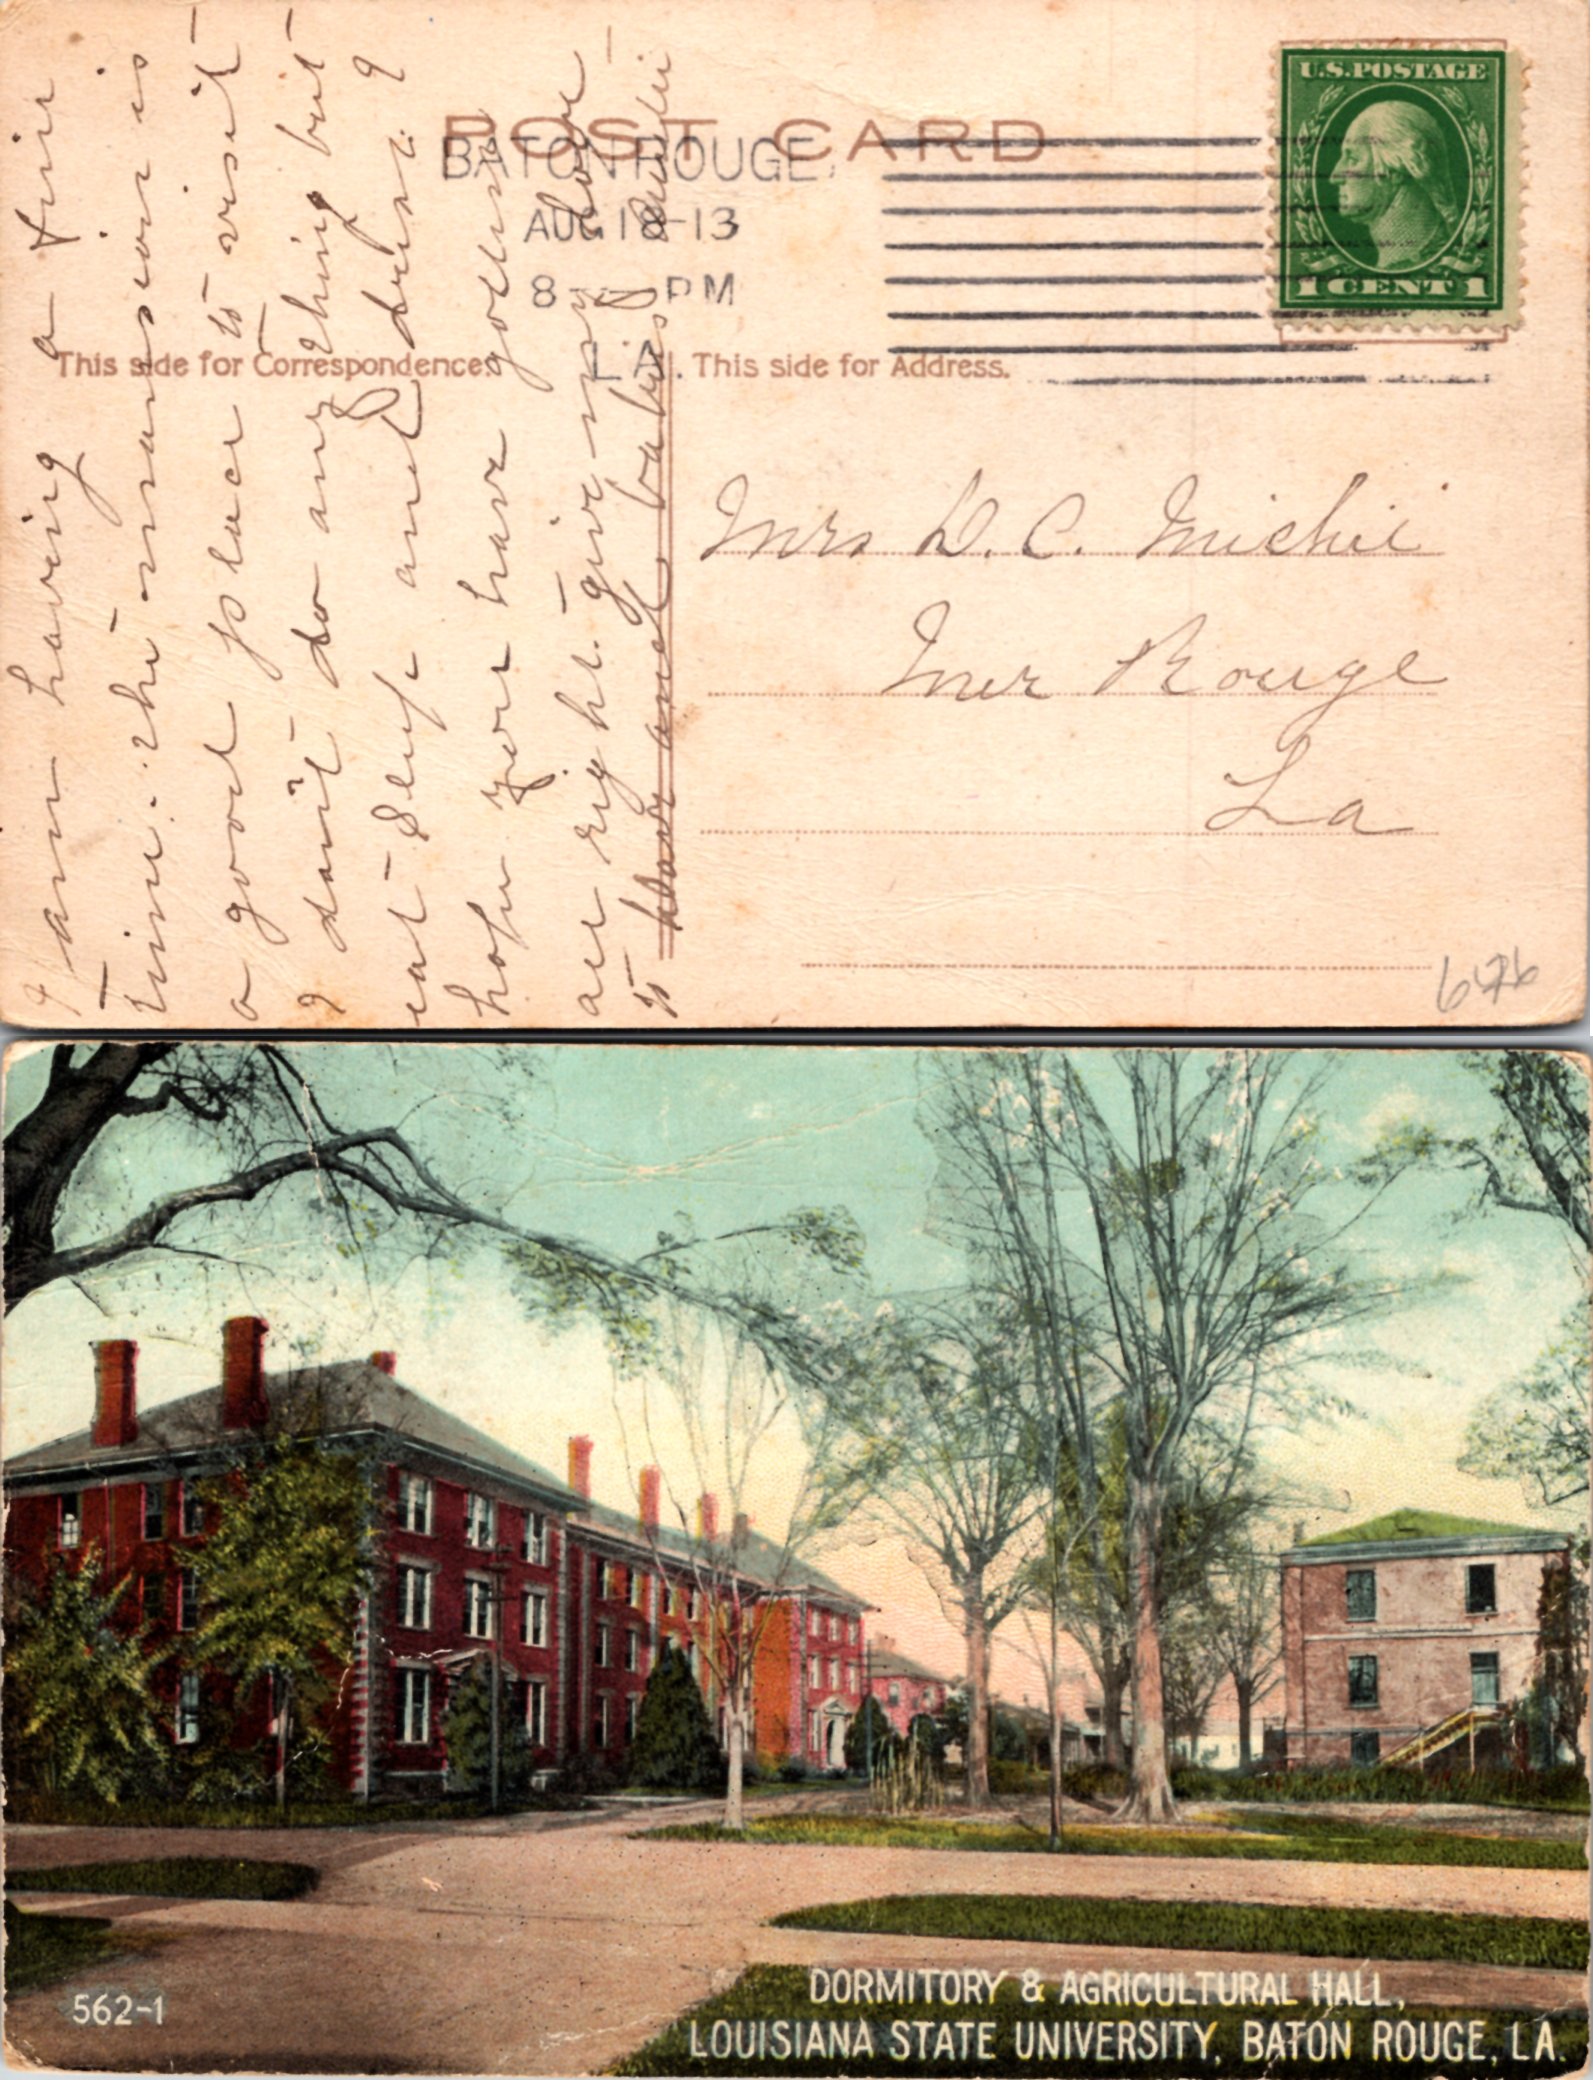 POST CARD
BATON ROUGE,
AUG 18-13
8 — PM
LA.
U.S. POSTAGE
1 CENT 1
This side for Correspondence.
This side for Address.
I am having a fine
time. the mansion is
a good place to visit
I don't do any thing but
eat sleep and drink. I
hope you have gotten
all right. give my love
to Dave and babies
Mrs D. C. Michie
Mer Rouge
La
676
562-1
DORMITORY & AGRICULTURAL HALL,
LOUISIANA STATE UNIVERSITY, BATON ROUGE, LA.